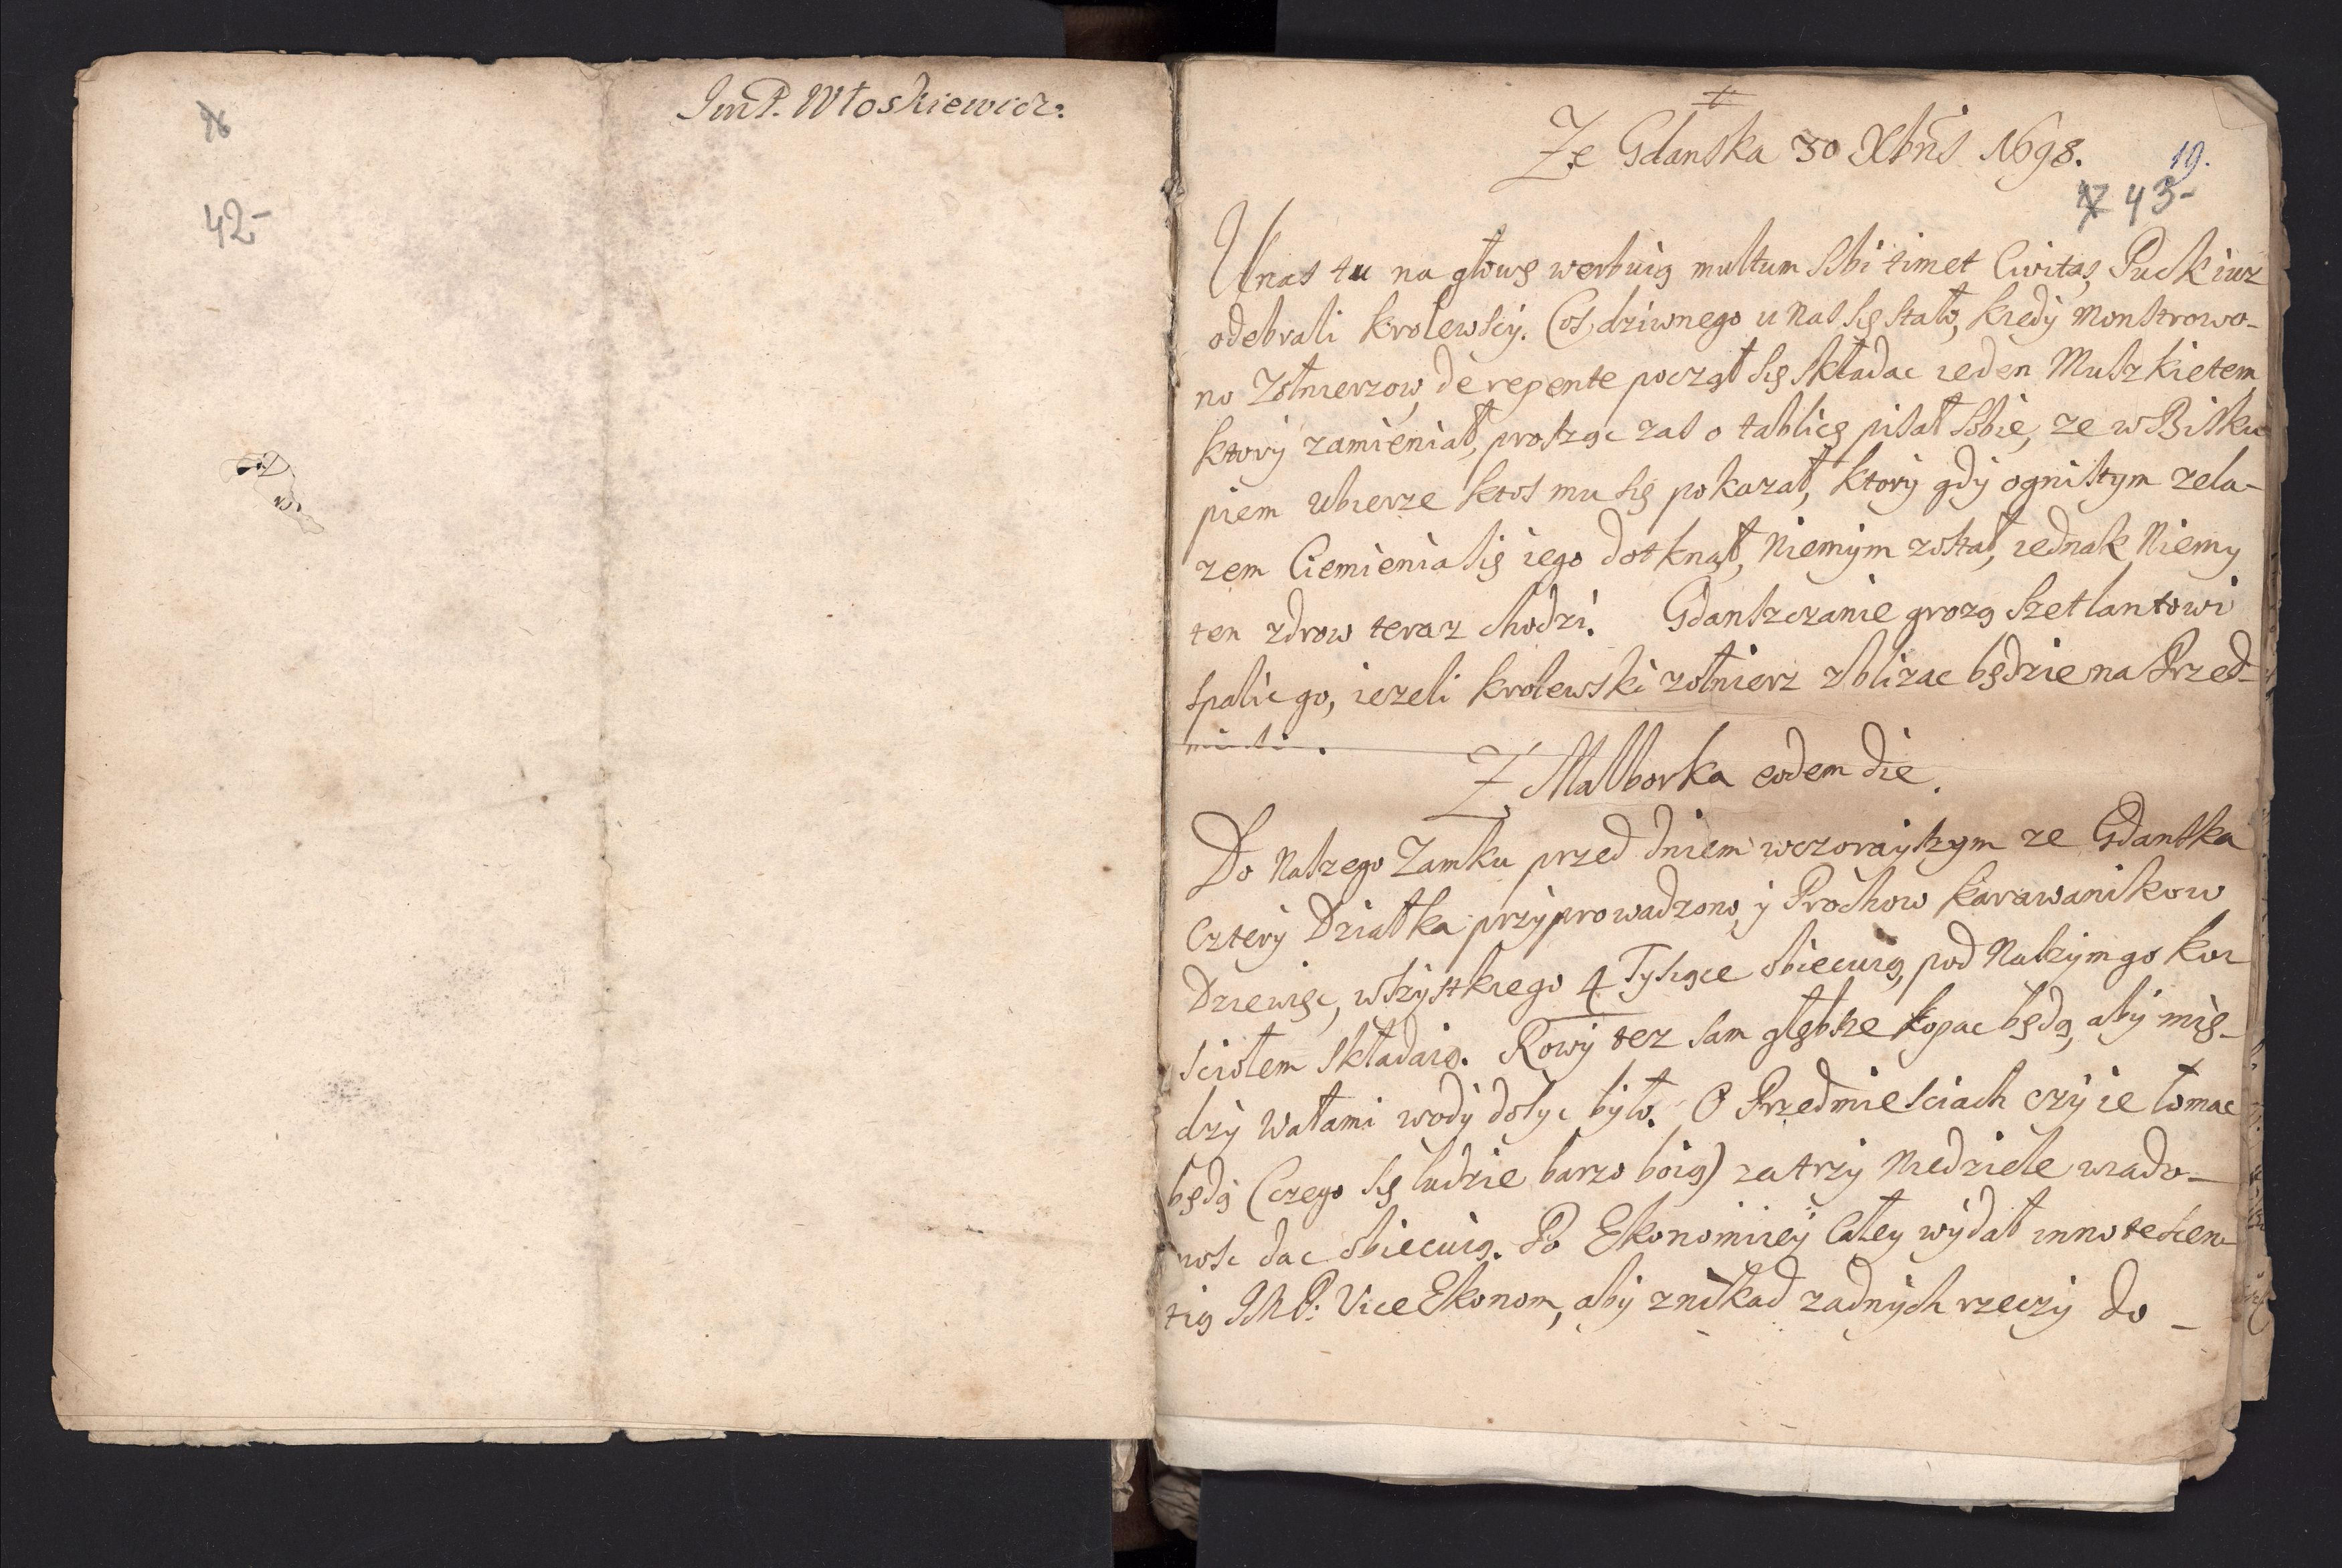 42-
ImP. Włoskiewicz:
Ze Gdanska 30 Xbris 1698.
19.
43-
U nas tu na głowę werbuią multum sibi timet Civitas, Puck iuz
odebrali krolewscy. Cos dziwnego u nas się stało, kiedy monstrowo-
no Zołnierzow, de repente począł się składac ieden Muszkietem
ktory zamieniał, prosząc zas o tablicę pisał sobie, ze w Bisku
piem ubierze ktos mu się pokazał, ktory gdy ognistym zela-
zem Ciemienia się iego dotknął, Niemym został, iednak Niemy
ten zdrow teraz chodzi. Gdanszczanie grozą Szetlantowi
spalic go, iezeli krolewski zołnierz zblizac będzie na Przed-
Z Malborka eodem die.
Do Naszego Zamku przed dniem wczorayszym ze Gdanska
Cztery Działka przyprowadzono, y Prochow karawanikow
Dziewięc, wszystkiego 4 Tysiące obiecuią, pod Naszym go kos
sciołem składaią. Rowy tez sam głębsze kopac będą, aby mię-
dzy Wałami wody dosyc było. O Przedmiesciach czy ie łomac
będą (czego się ludzie barzo boią) za trzy Niedziele wiado-
nosc dac obiecuią. Po Ekonomiiey Całey wydał innotescen-
tią IMP: Vice Ekonom, aby znikad zadnych rzeczy do -